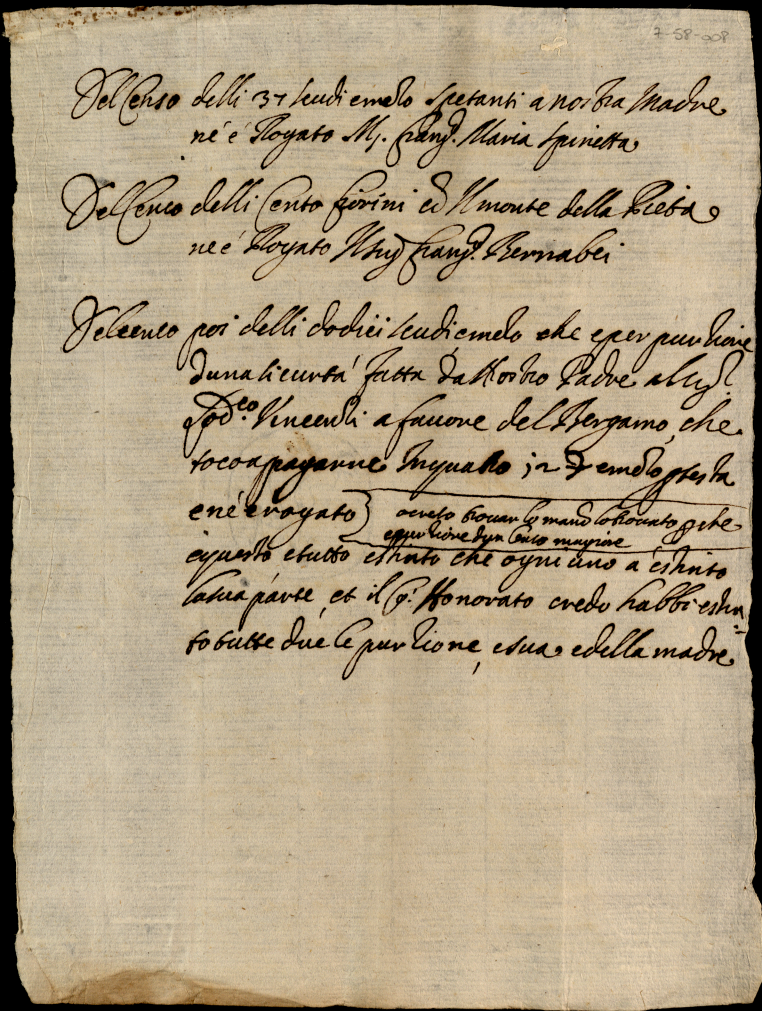 7-58-008
Del Censo delli 37 scudi e mezo spetanti a nostra Madre
né é Rogato M. Franc.o Maria Spinetta
Del Censo delli Cento fiorini co Il monte della Pieta
ne é Rogato Il sig Franc.o Bernabei
Del censo poi delli dodici scudi e mezo che e per purtione
duna sicurtà fatta da Nostro Padre al sig.r
Vincenti a favore del Bergamo, che
toco a pagarne In quatro 12 e mezo p testa
e né é rogato } o creto trovar lo manco lo trovato p che
e purtione dun Censo magiore
e questo e tutto estinto che ogni uno a estinto
la sua parte, et il Honorato credo habbi estin=
to tutte due le purtione, e sua e della madre